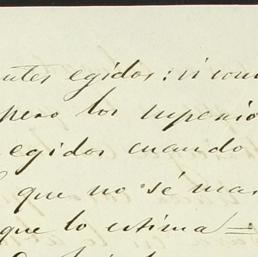 egidos: si
pero los superio
egidos cuando
que no sé mar
que lo estima =